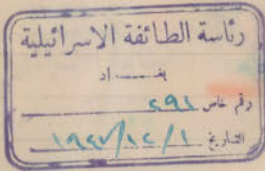 رئاسة الطائفة الاسرائيلية
بغـــداد
رقم خاص ٤٩١
التاريخ ١٩٤٧/١٢/١